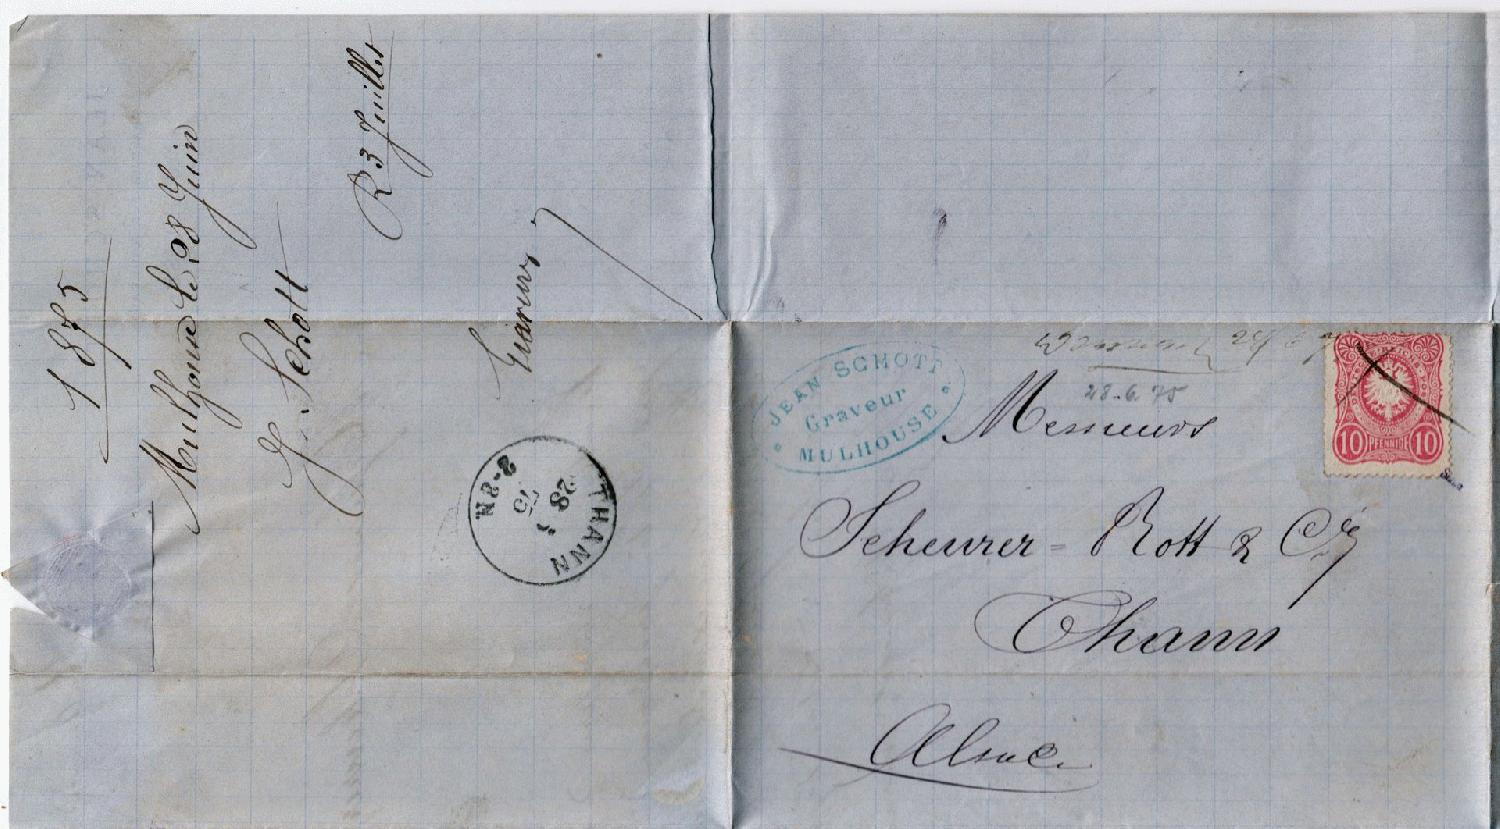 1875
Mulhouse le 28 Juin
J. Schott
R 3 Juillet
THANN
28
75
2-8N
JEAN SCHOTT
Graveur
MULHOUSE
28.6.75
10 PFENNIGE 10
Messieurs
Scheurer-Rott & Cie
Thann
Alsace